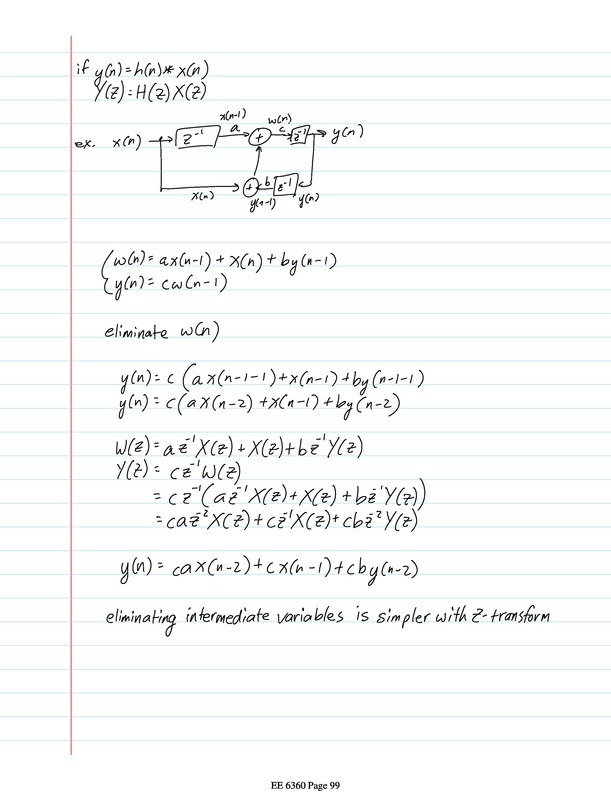 if y(n)=h(n)* x(n)
Y(z)=H(z)X(z)
ex. x(n) z⁻¹ x(n-1) a + w(n) c z⁻¹ y(n)
x(n) + b z⁻¹ y(n-1) y(n)
w(n)= ax(n-1) + x(n) + by(n-1)
y(n)= cw(n-1)
eliminate w(n)
y(n)= c (ax(n-1-1)+x(n-1)+by(n-1-1)
y(n)= c(ax(n-2)+x(n-1)+by(n-2)
W(z)= az⁻¹X(z)+X(z)+bz⁻¹Y(z)
Y(z)= cz⁻¹W(z)
= cz⁻¹(az⁻¹X(z)+X(z)+bz⁻¹Y(z))
= caz⁻²X(z)+cz⁻¹X(z)+cbz⁻²Y(z)
y(n)= cax(n-2)+cx(n-1)+cby(n-2)
eliminating intermediate variables is simpler with z-transform
EE 6360 Page 99